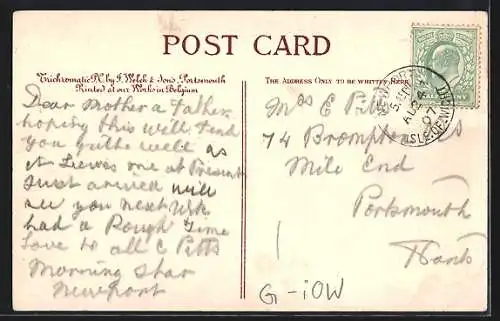 POST CARD
Trichromatic P.C. by F. Welch & Sons, Portsmouth
Printed at our Works in Belgium
THE ADDRESS ONLY TO BE WRITTEN HERE
Dear Mother a Father
hoping this will find
you quite well as
it Leaves one at Present
Just arived will
see you next Wk
had a Rough Time
Love to all C Pitts
Morning Star
Newport
Mrs E Pitts
74 Brompton Rd
Mile End
Portsmouth
Hants
NEWPORT
AU 24
07
ISLE-OF-WIGHT
G - IOW